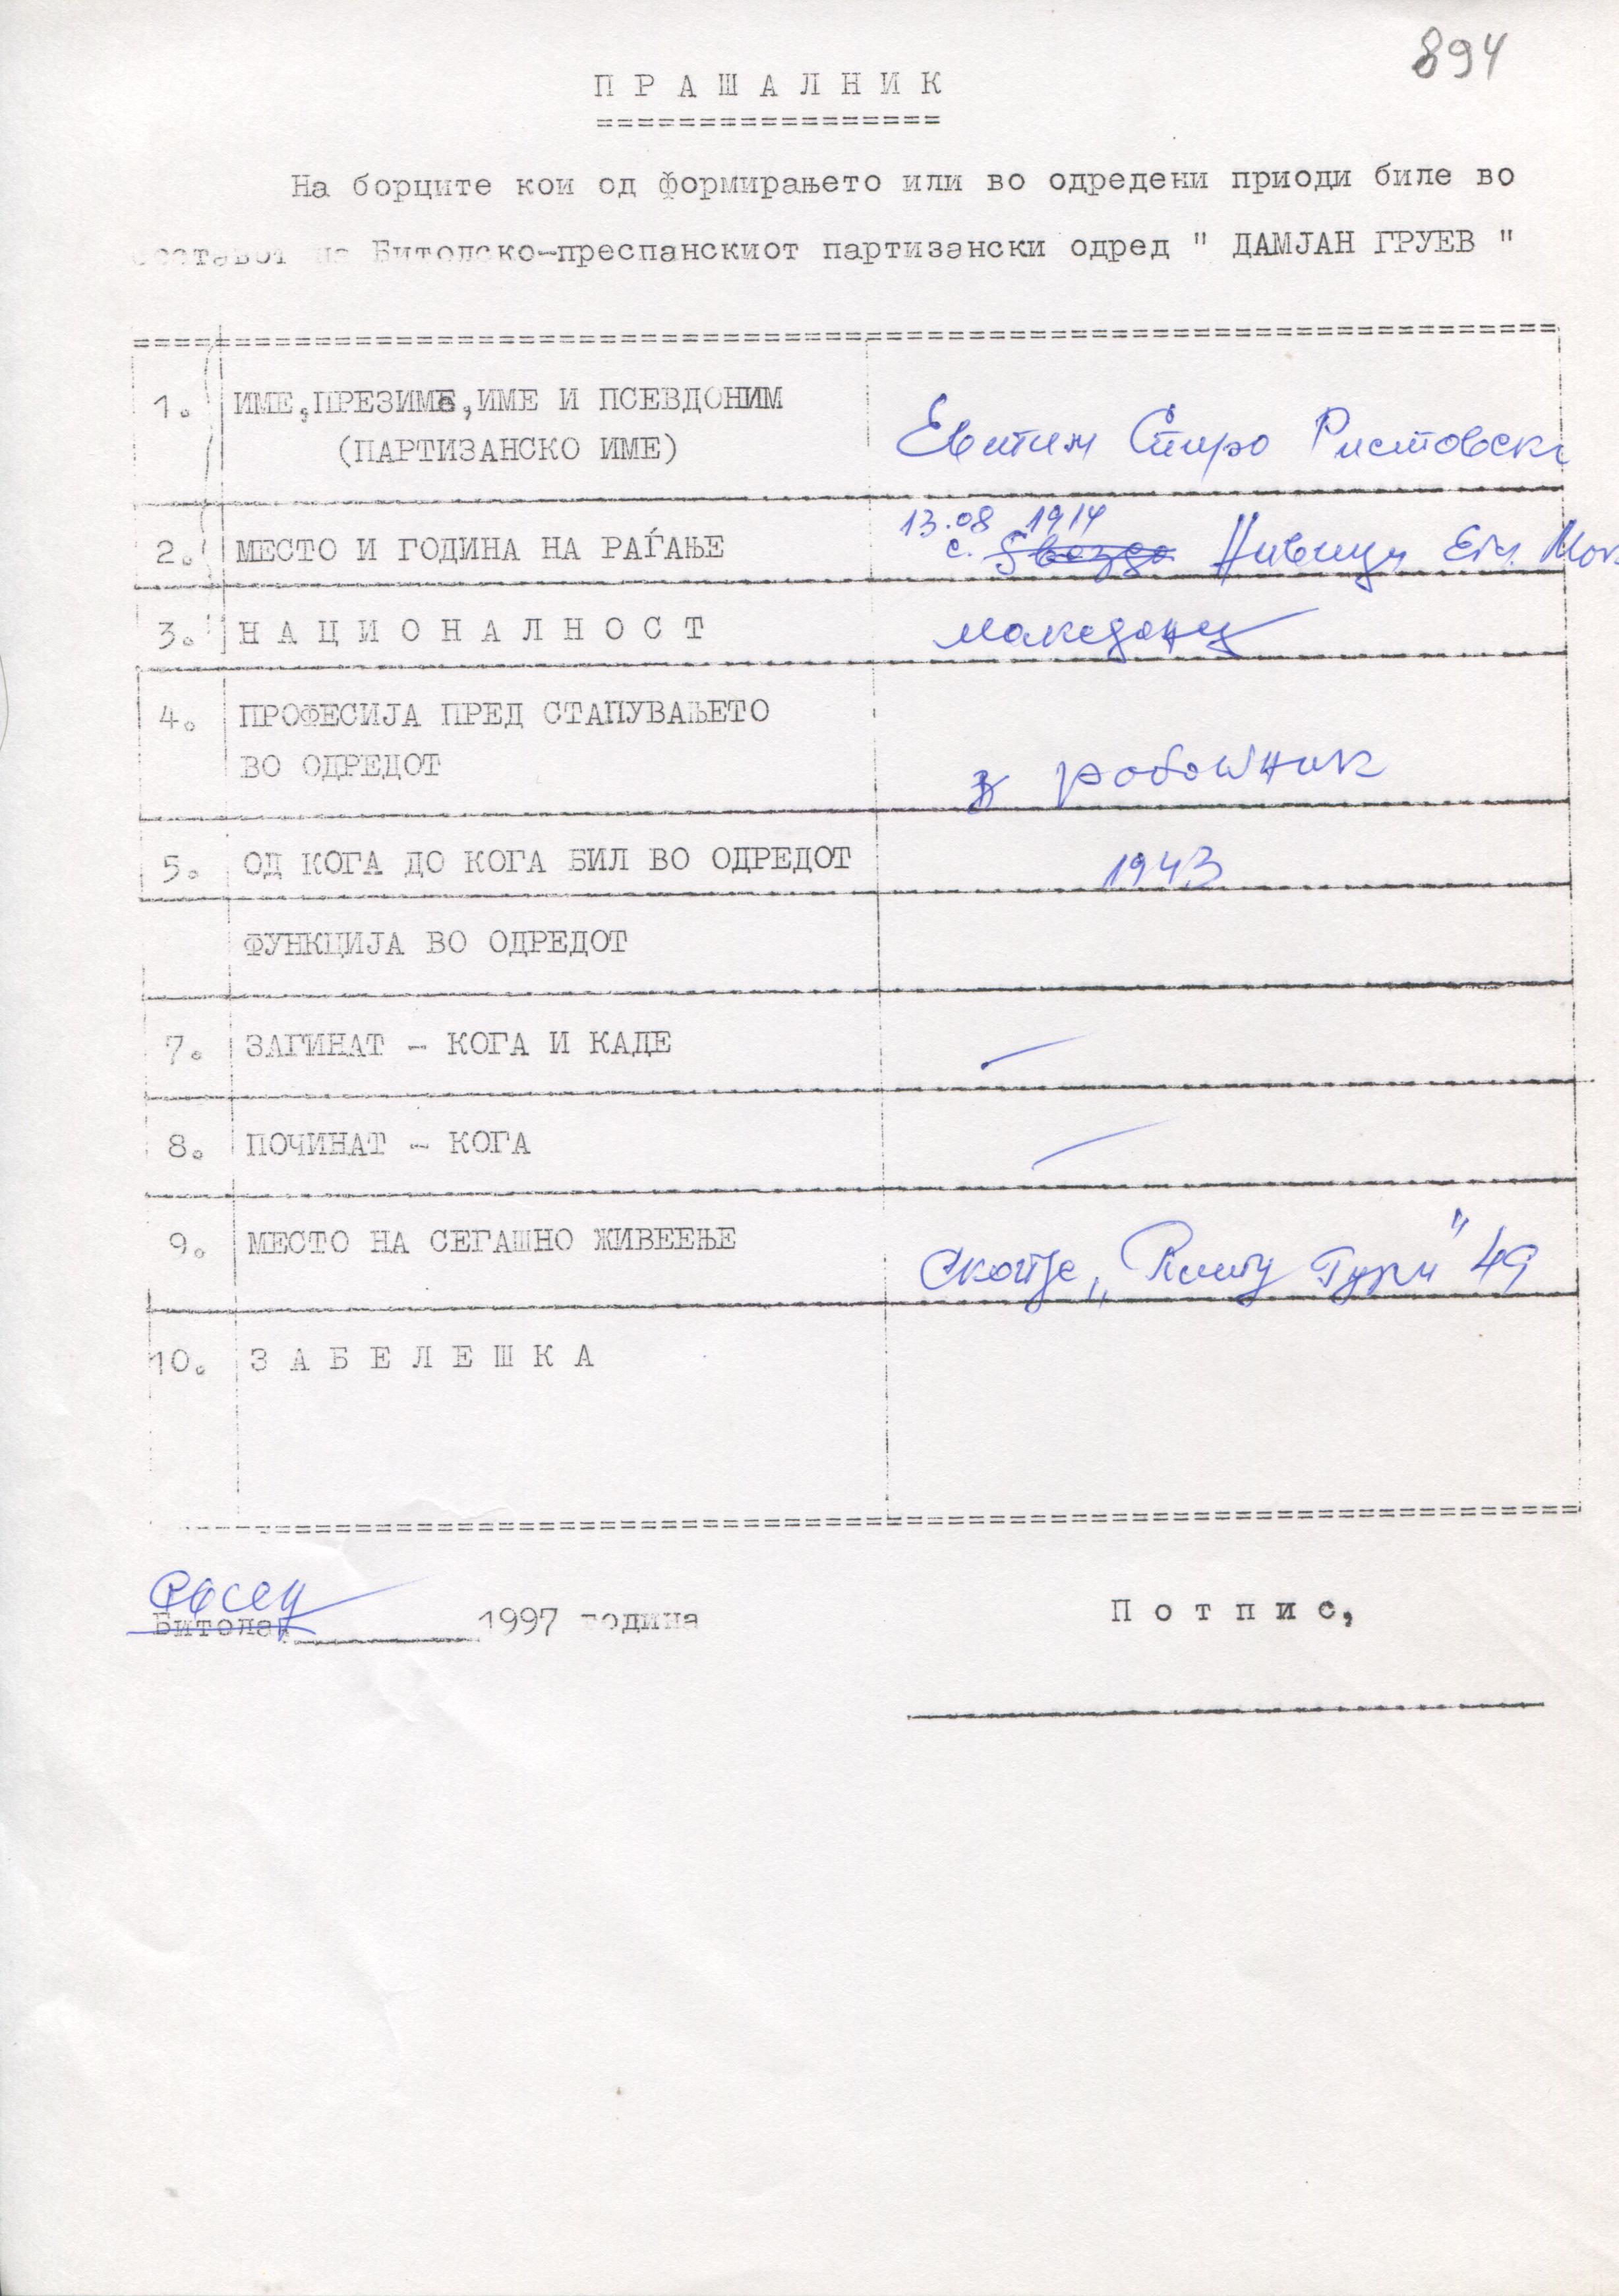 894
П Р А Ш А Л Н И К
=================
На борците кои од формирањето или во одредени приоди биле во
составот на Битолско-преспанскиот партизански одред " ДАМЈАН ГРУЕВ "
1. ИМЕ,ПРЕЗИМЕ,ИМЕ И ПСЕВДОНИМ
(ПАРТИЗАНСКО ИМЕ)
Евтим Спиро Ристовски
13.08 1914
2. МЕСТО И ГОДИНА НА РАЃАЊЕ с. Ѕвезда Нивици, Ег. Мак
3. Н А Ц И О Н А Л Н О С Т македонец
4. ПРОФЕСИЈА ПРЕД СТАПУВАЊЕТО
ВО ОДРЕДОТ работник
5. ОД КОГА ДО КОГА БИЛ ВО ОДРЕДОТ 1943
ФУНКЦИЈА ВО ОДРЕДОТ
7. ЗАГИНАТ - КОГА И КАДЕ —
8. ПОЧИНАТ - КОГА —
9. МЕСТО НА СЕГАШНО ЖИВЕЕЊЕ Скопје „ Гури" 49
10. З А Б Е Л Е Ш К А
Ресен
Битола, 1997 година
П о т п и с,